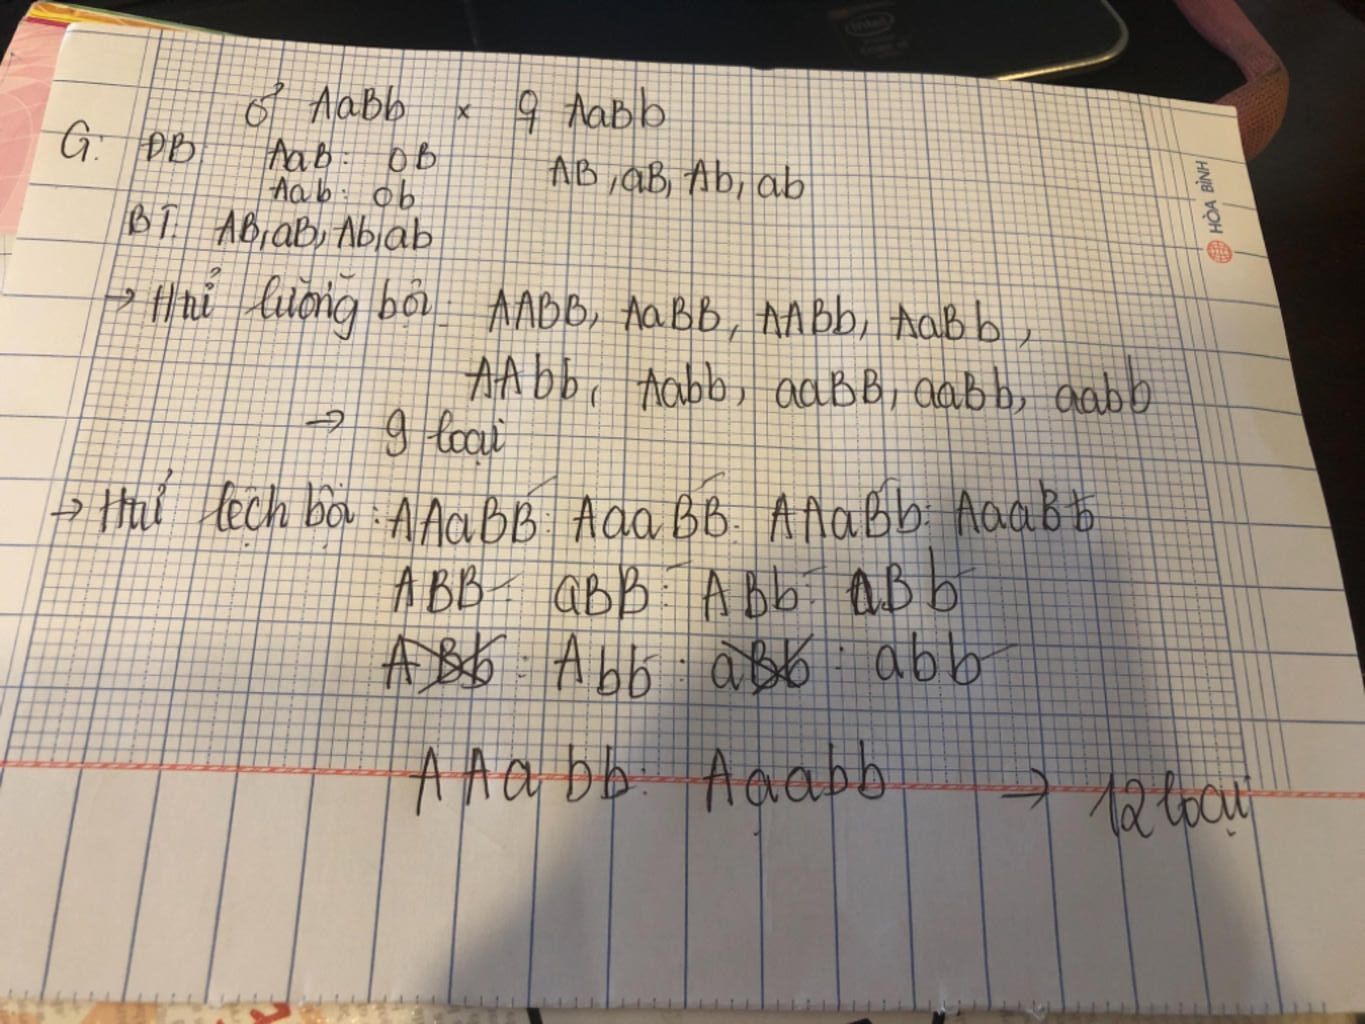 ♂ AaBb × ♀ AaBb
G: ĐB AaB : OB AB, aB, Ab, ab
Aab : Ob
BT: AB, aB, Ab, ab
→ Htử lưỡng bội: AABB, AaBB, AABb, AaBb,
AAbb, Aabb, aaBB, aaBb, aabb
→ 9 loại
→ Htử lệch bội: AAaBB : AaaBB : AAaBb : AaaBb
ABB : aBB : ABb : aBb
ABb : Abb : aBb : abb
AAabb : Aaabb → 12 loại
HÒA BÌNH
intel